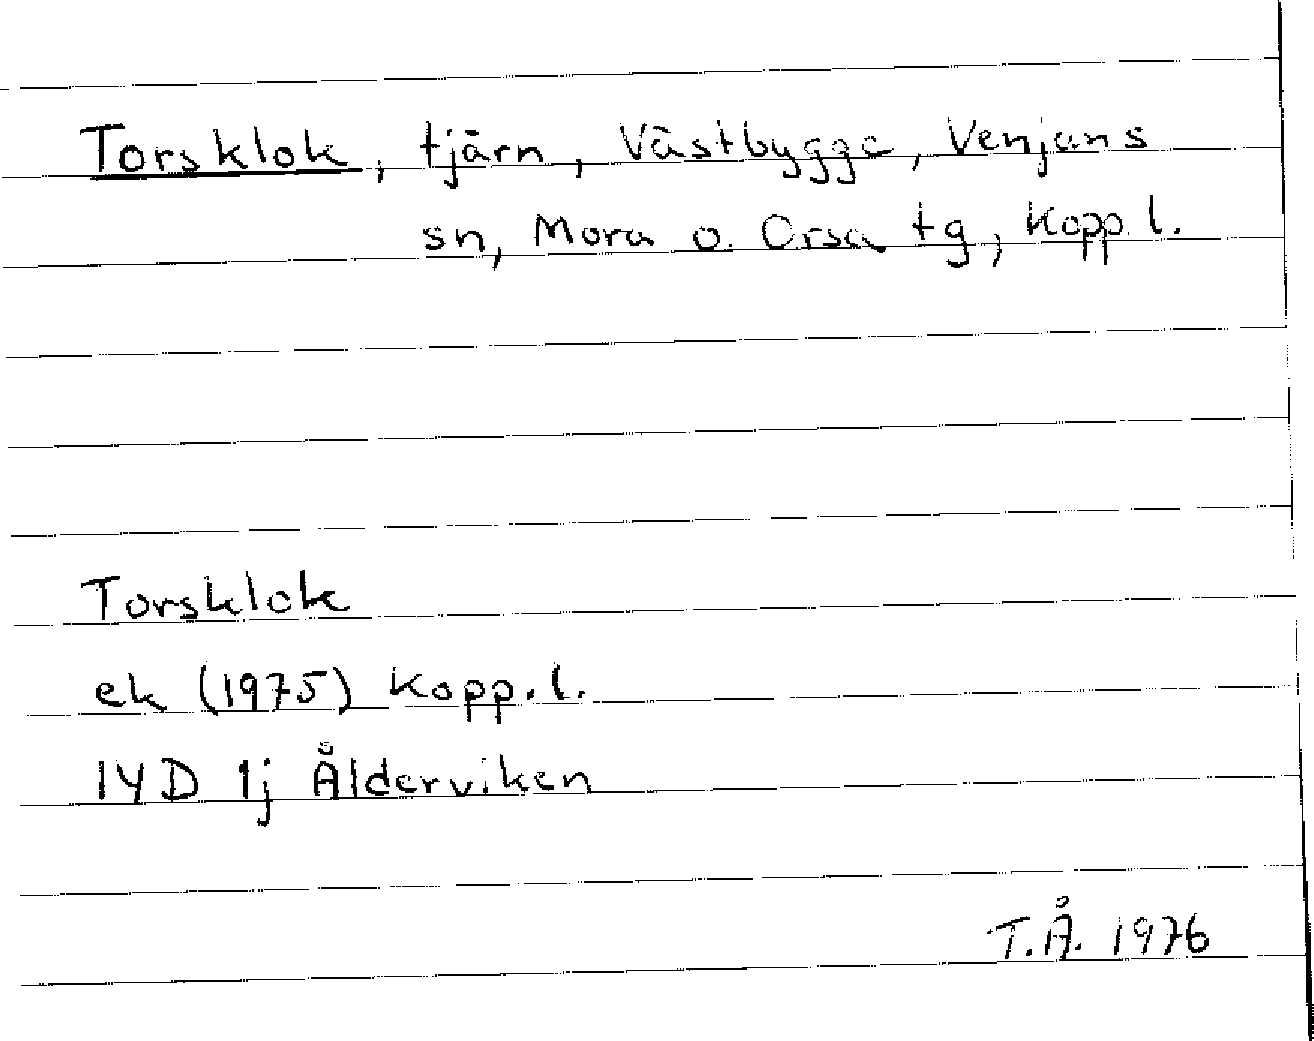 Torsklok, tjärn, Västbygge, Venjans
sn, Mora o. Orsa tg, Kopp. l.
Torsklok
ek (1975) Kopp. l.
14D 1j Ålderviken
T.Å. 1976